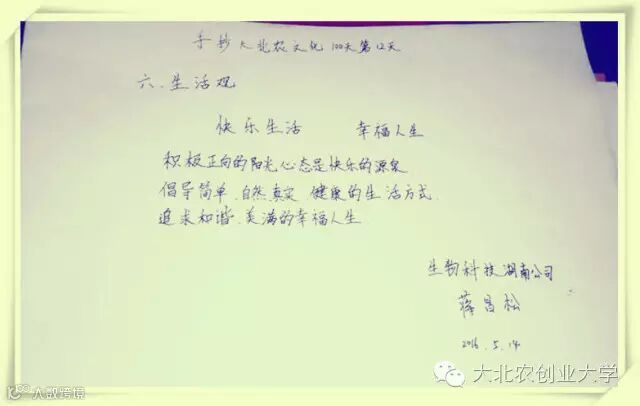 手抄大北农文化100天第12天
六、生活观
快乐生活 幸福人生
积极正向的阳光心态是快乐的源泉
倡导简单、自然真实、健康的生活方式
追求和谐、美满的幸福人生
生物科技湖南公司
蒋昌松
2016.5.14
大北农创业大学
大数跨境